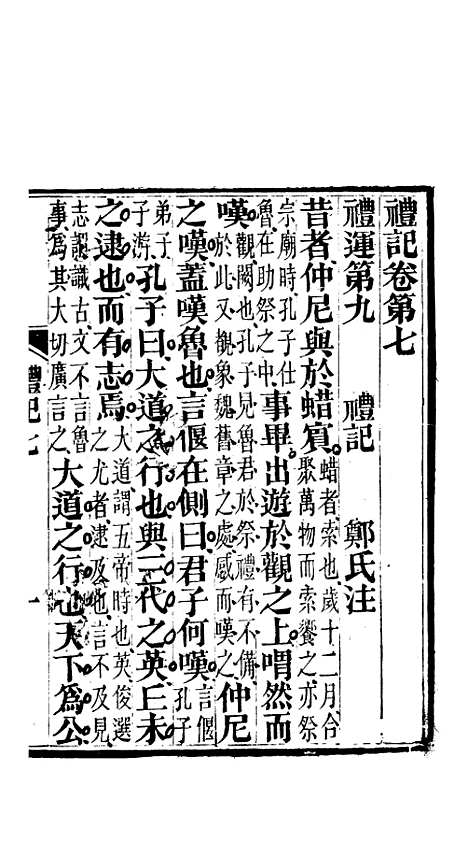 禮記卷第七
禮運第九 禮記 鄭氏注
昔者仲尼與於蜡賓。蜡者索也歲十二月合聚萬物而索饗之亦祭
宗廟時孔子仕魯在助祭之中事畢出遊於觀之上。喟然而
嘆。觀闕也孔子見魯君於祭禮有不備於此又覩象魏舊章之處感而嘆之仲尼
之嘆。蓋嘆魯也。言偃在側曰。君子何嘆。言偃孔子
弟子子游孔子曰。大道之行也。與三代之英。丘未
之逮也。而有志焉。大道謂五帝時也英俊選之尤者逮及也言不及見
志謂識古文不言魯事爲其大切廣言之大道之行也。天下爲公。
禮記七 一